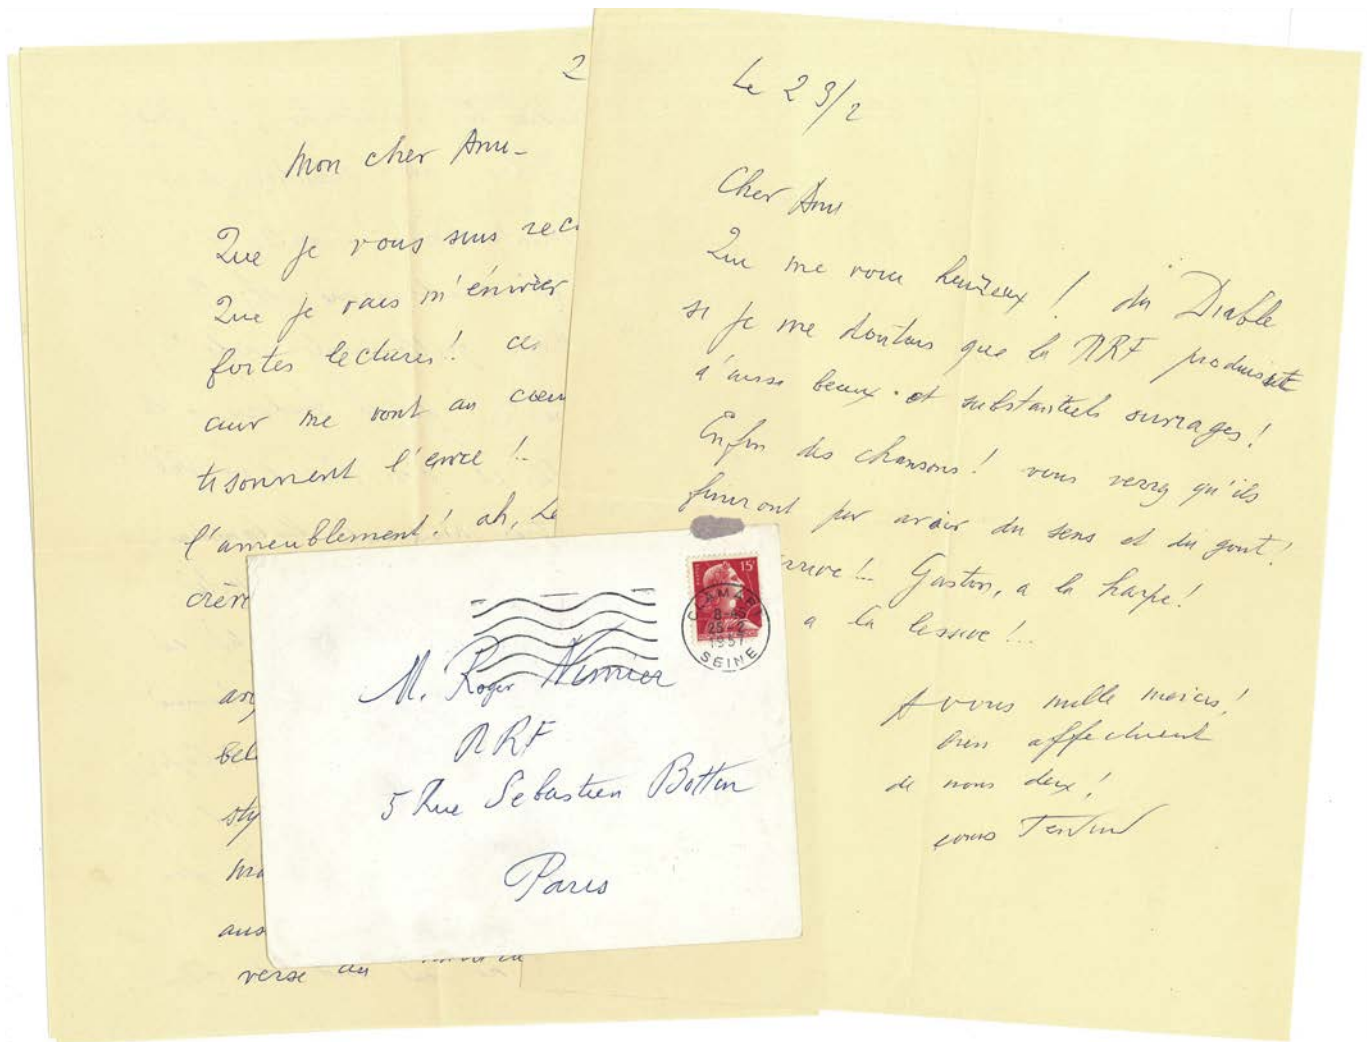 2
Mon cher Ami -
Que je vous suis rec
Que je vais m'énivrer
fortes lectures! ces
cuir me vont au coeur
tisonnent l'envie !..
l'ameublement! ah, Le
crèm
arg
bel
sty
ma
aus
verse au
Le 23/2
Cher Ami
Que me voici heureux ! du Diable
si je me doutais que la NRF produisit
d'aussi beaux et substantiels ouvrages!
Enfin des chansons! vous verrez qu'ils
finiront par avoir du sens et du gout!
rrive !.. Gaston, a la harpe!
a la lessive !...
A vous mille mercis!
bien affectueux
de nous deux!
15F
CLAMART
8-45
25-2
1957
SEINE
M. Roger Nimier
NRF
5 Rue Sebastien Bottin
Paris